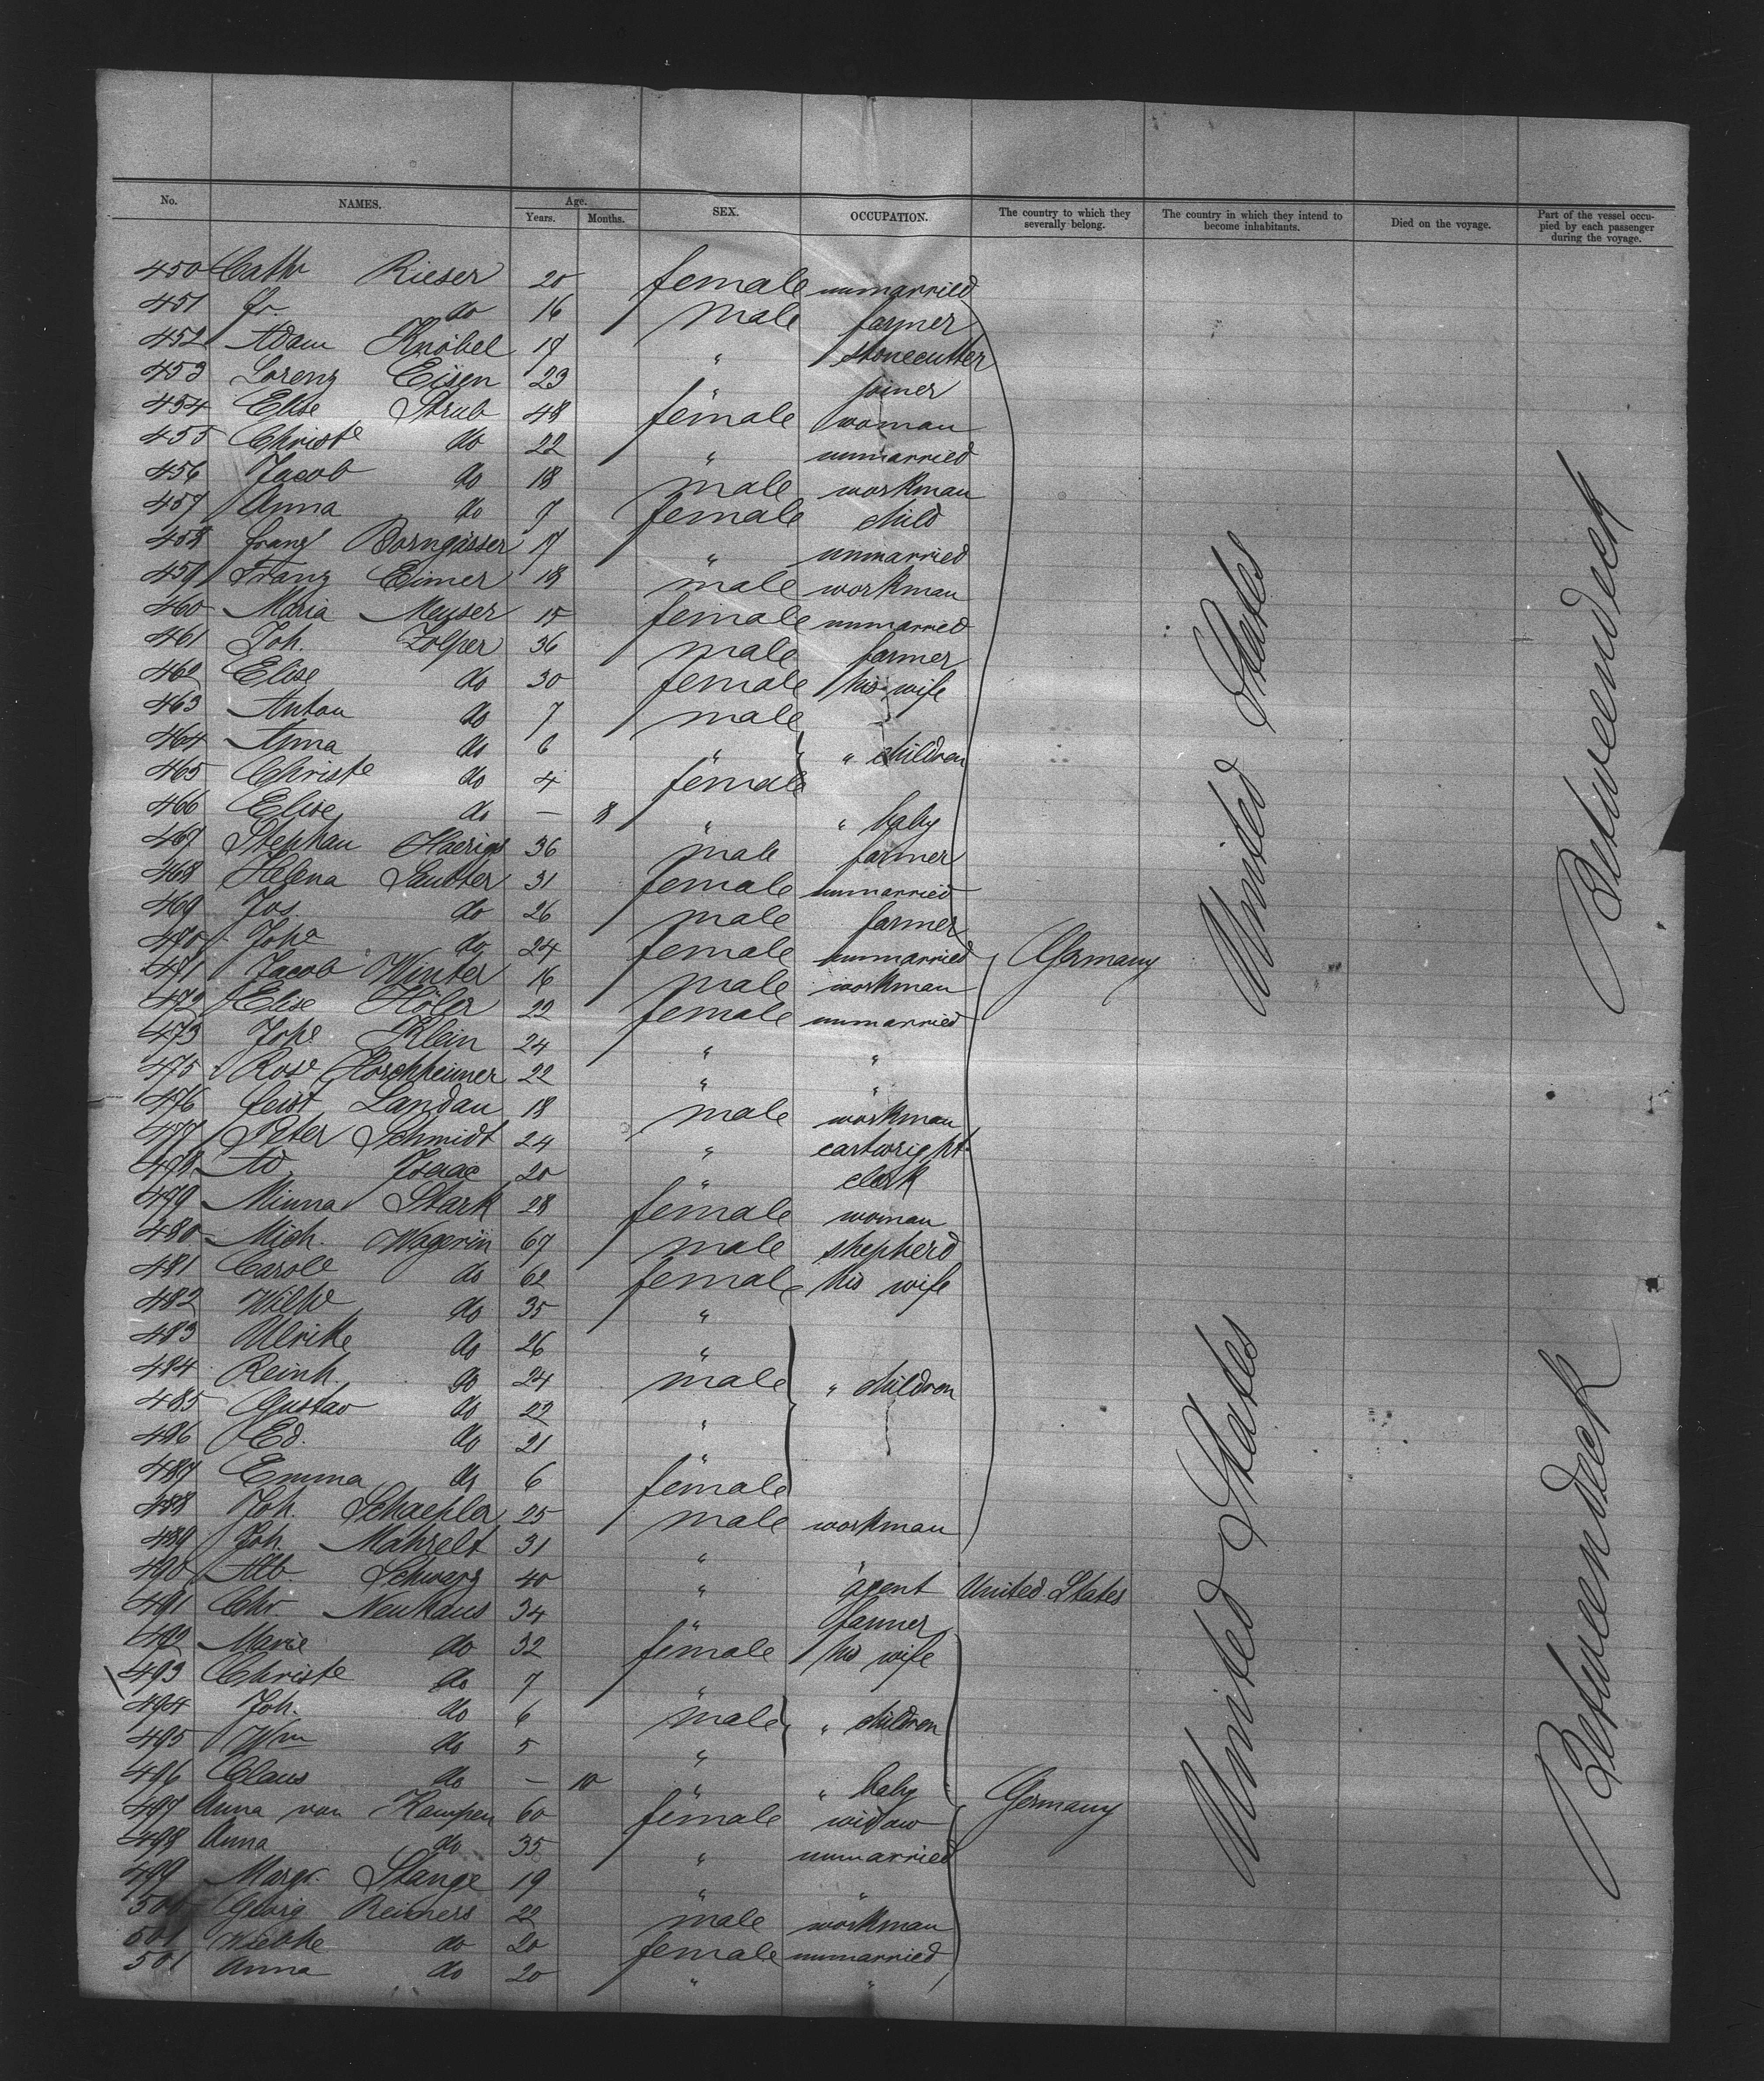 No. NAMES. Age. Years. Months. SEX. OCCUPATION. The country to which they severally belong. The country in which they intend to become inhabitants. Died on the voyage. Part of the vessel occupied by each passenger during the voyage.
450 Cathe Rieser 20 female unmarried
451 Fr. do 16 male farmer
452 Adam Knöbel 17 " stonecutter
453 Lorenz Eisen 23 " joiner
454 Elise Strub 48 female woman
455 Christe do 22 " unmarried
456 Jacob do 18 male workman
457 Anna do 7 female child
458 Franz Borngässer 17 " unmarried
459 Franz Eimer 18 male workman
460 Maria Meyser 15 female unmarried
461 Joh. Zolper 36 male farmer
462 Elise do 30 female his wife
463 Anton do 7 male
464 Anna do 6 " " children
465 Christe do 4 female
466 Elise do — 8 " " baby
467 Stephan 36 male farmer
468 Helena Sautter 31 female unmarried
469 Jos. do 26 male farmer
470 Johe do 24 female unmarried Germany United States Betweendeck
471 Jacob Winter 16 male workman
472 Elise Höler 22 female unmarried
473 Johe Klein 24 " "
475 Rose Horchheimer 22 " "
476 Feist Landau 18 male workman
477 Peter Schmidt 24 " cartwright
478 Ad. Isaac 20 " clerk
479 Minna Stark 28 female woman
480 Mich. Wegerin 67 male shepherd
481 Carole do 62 female his wife
482 Wilhe do 35 "
483 Ulrike do 26 "
484 Reinh. do 24 male " children
485 Gustav do 22 "
486 Ed. do 21 "
487 Emma do 6 female
488 Joh. Schaepler 25 male workman
489 Joh. Mahrelt 31 "
490 Alb. Schwarz 40 " agent United States
491 Chr. Neuhaus 34 " farmer
492 Marie do 32 female his wife
493 Christe do 7 "
494 Joh. do 6 male " children
495 Wm do 5 "
496 Claus do — 10 " " baby
497 Anna von Kampen 60 female widow Germany United States Betweendeck
498 Anna do 35 " unmarried
499 Margr. Stange 19 " "
500 Georg Reimers 22 male workman
501 Wiebke do 20 female unmarried
501 Anna do 20 " "